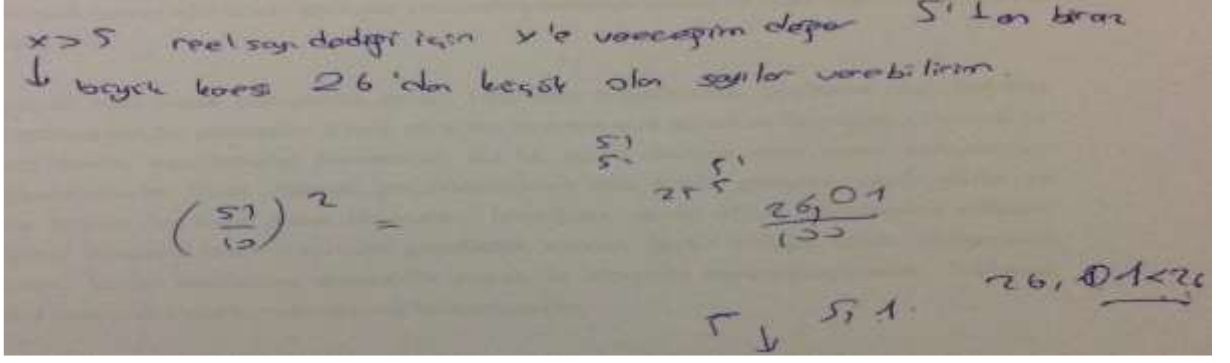 x>5 reel sayı dediği için x'e vereceğim değer 5'ten biraz
↓ büyük karesi 26'dan küçük olan sayılar verebilirim.
51
5
25 5
(51/10)² = 26,01/100
26,01<26
5 ↓ 5,1.